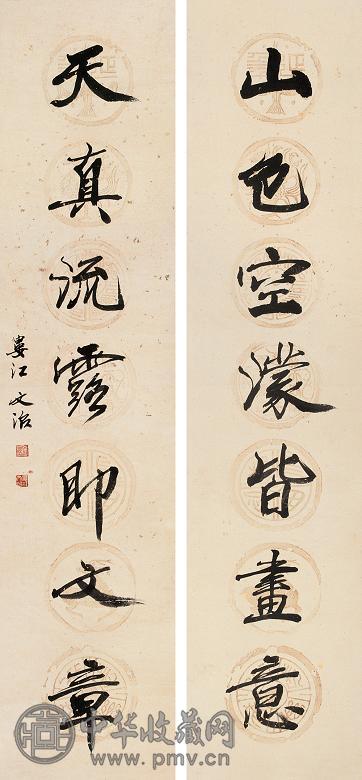 山色空濛皆畫意
天真流露即文章
婁江文治
中华收藏网
www.pmv.cn